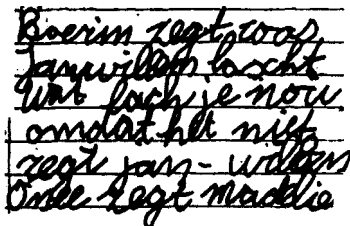 Boerin zegt, roos
Janwillem lascht
Wat lach je nou
omdat het niet
zegt jan-willem
Onee zegt maddie